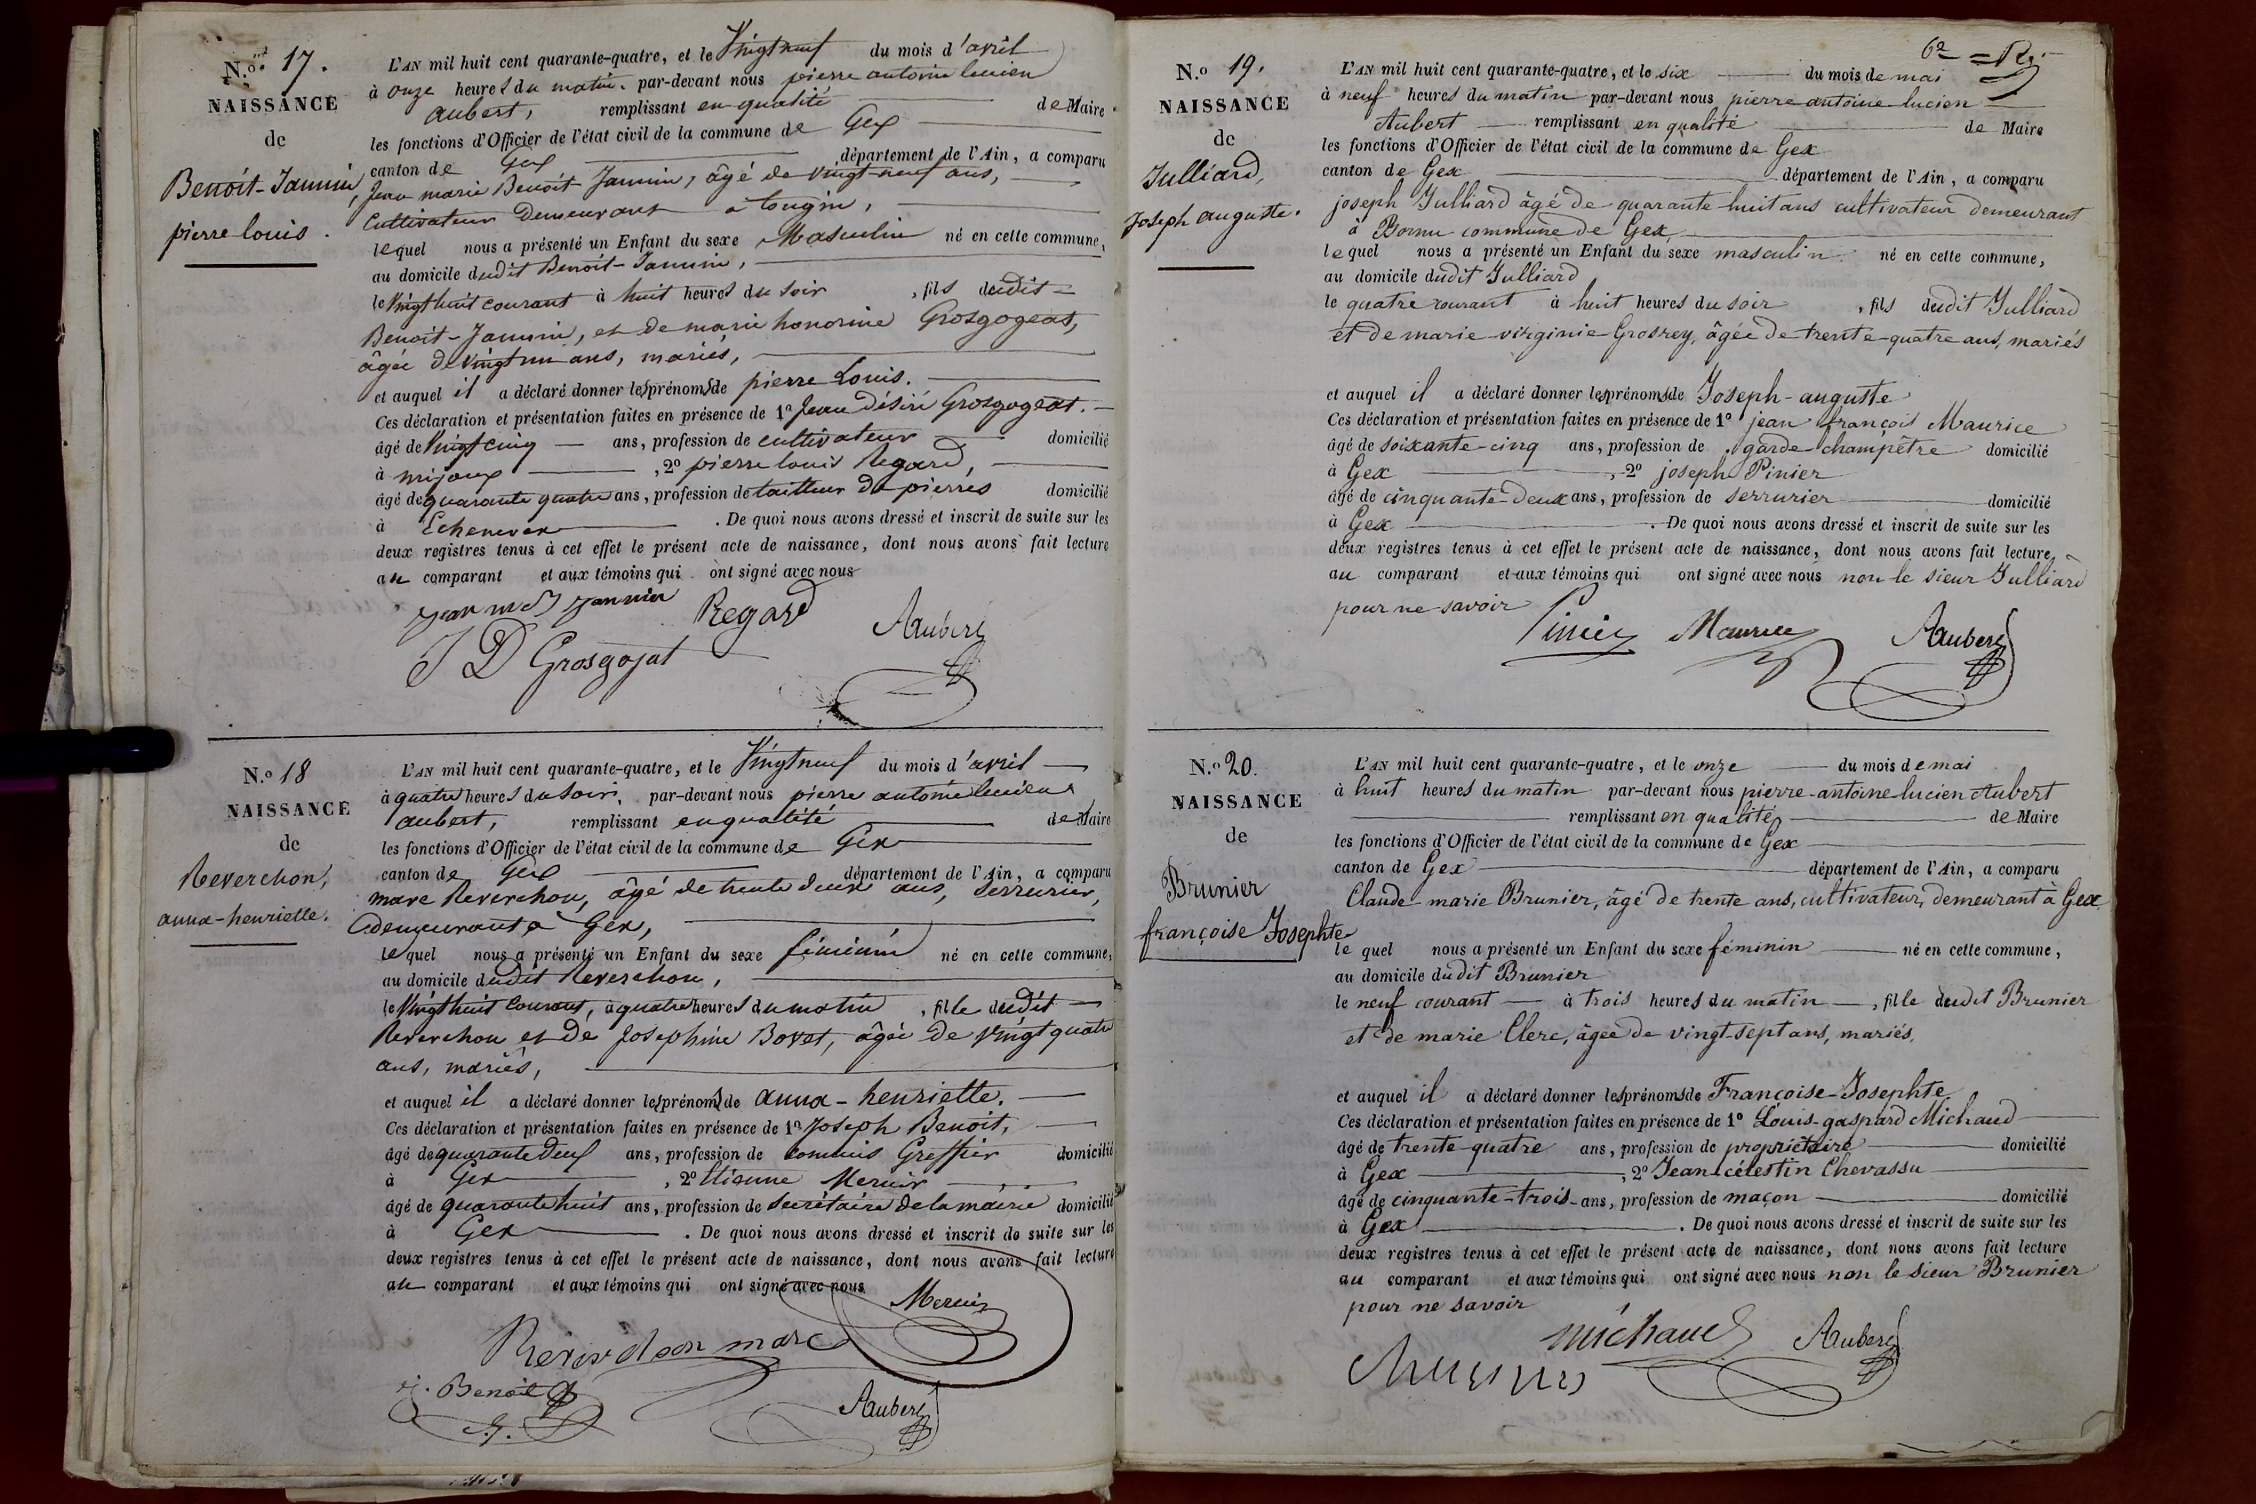 N.º 17.
NAISSANCE
de
Benoit-Jannin,
pierre louis.
L'AN mil huit cent quarante-quatre, et le Vingt neuf du mois d'avril
à onze heures du matin. par-devant nous pierre antoine lucien
aubert, remplissant en qualité de Maire
les fonctions d'Officier de l'état civil de la commune de Gex
canton de Gex département de l'Ain, a comparu
Jean marie Benoit-Jannin, âgé de vingt-neuf ans,
Cultivateur Demeurant à tougin,
lequel nous a présenté un Enfant du sexe Masculin né en cette commune,
au domicile dudit Benoit-Jannin,
le Vingt huit courant à huit heures du soir, fils dudit
Benoit-Jannin, et de marie honorine Grosgogeat,
âgée de vingt un ans, mariés,
et auquel il a déclaré donner les prénoms de pierre Louis.
Ces déclaration et présentation faites en présence de 1º Jean désiré Grosgogeat.
âgé de Vingt cinq ans, profession de cultivateur domicilié
à mijoux, 2º pierre louis Regard,
âgé de quarante quatre ans, profession de tailleur de pierres domicilié
à Echenevex. De quoi nous avons dressé et inscrit de suite sur les
deux registres tenus à cet effet le présent acte de naissance, dont nous avons fait lecture
au comparant et aux témoins qui ont signé avec nous
Regard
J D Grosgojat
Aubert
N.º 18
NAISSANCE
de
Reverchon,
anna-henriette.
L'AN mil huit cent quarante-quatre, et le Vingt neuf du mois d'avril
à quatre heures du soir. par-devant nous pierre antoine lucien
aubert, remplissant en qualité de Maire
les fonctions d'Officier de l'état civil de la commune de Gex
canton de Gex département de l'Ain, a comparu
marc Reverchon, âgé de trente deux ans, Serrurier,
demeurant à Gex,
lequel nous a présenté un Enfant du sexe féminin né en cette commune,
au domicile dudit Reverchon,
le Vingt huit courant, à quatre heures du matin, fille dudit
Reverchon et de Josephine Bovet, âgée de vingt quatre
ans, mariés,
et auquel il a déclaré donner les prénoms de anna-henriette.
Ces déclaration et présentation faites en présence de 1º Joseph Benoit,
âgé de quarante deux ans, profession de commis Greffier domicilié
à Gex, 2º Etienne Mercier
âgé de quarante huit ans, profession de Secrétaire de la mairie domicilié
à Gex. De quoi nous avons dressé et inscrit de suite sur les
deux registres tenus à cet effet le présent acte de naissance, dont nous avons fait lecture
au comparant et aux témoins qui ont signé avec nous
Mercier
Reverchon marc
j. Benoit
Aubert
62
N.º 19.
NAISSANCE
de
Julliard,
Joseph auguste.
L'AN mil huit cent quarante-quatre, et le six du mois de mai
à neuf heures du matin par-devant nous pierre antoine lucien
Aubert remplissant en qualité de Maire
les fonctions d'Officier de l'état civil de la commune de Gex
canton de Gex département de l'Ain, a comparu
joseph Julliard âgé de quarante huit ans cultivateur demeurant
à Pornu commune de Gex
lequel nous a présenté un Enfant du sexe masculin né en cette commune,
au domicile dudit Julliard
le quatre courant à huit heures du soir, fils dudit Julliard
et de marie virginie Grosrey, âgée de trente-quatre ans, mariés
et auquel il a déclaré donner les prénoms de Joseph-auguste
Ces déclaration et présentation faites en présence de 1º jean françois Maurice
âgé de soixante-cinq ans, profession de garde-champêtre domicilié
à Gex, 2º joseph Pinier
âgé de cinquante-deux ans, profession de serrurier domicilié
à Gex. De quoi nous avons dressé et inscrit de suite sur les
deux registres tenus à cet effet le présent acte de naissance, dont nous avons fait lecture
au comparant et aux témoins qui ont signé avec nous non le sieur Julliard
pour ne savoir
Pinier Maurice Aubert
N.º 20.
NAISSANCE
de
Brunier
françoise Josephte
L'AN mil huit cent quarante-quatre, et le onze du mois de mai
à huit heures du matin par-devant nous pierre-antoine-lucien Aubert
remplissant en qualité de Maire
les fonctions d'Officier de l'état civil de la commune de Gex
canton de Gex département de l'Ain, a comparu
Claude marie Brunier, âgé de trente ans, cultivateur, demeurant à Gex
lequel nous a présenté un Enfant du sexe féminin né en cette commune,
au domicile dudit Brunier
le neuf courant à trois heures du matin, fille dudit Brunier
et de marie Clerc, âgée de vingt-sept ans, mariés.
et auquel il a déclaré donner les prénoms de Françoise-Josephte
Ces déclaration et présentation faites en présence de 1º Louis-gaspard Michaud
âgé de trente-quatre ans, profession de propriétaire domicilié
à Gex, 2º Jean-célestin Chevassu
âgé de cinquante-trois ans, profession de maçon domicilié
à Gex. De quoi nous avons dressé et inscrit de suite sur les
deux registres tenus à cet effet le présent acte de naissance, dont nous avons fait lecture
au comparant et aux témoins qui ont signé avec nous non le sieur Brunier
pour ne savoir
michaud Aubert